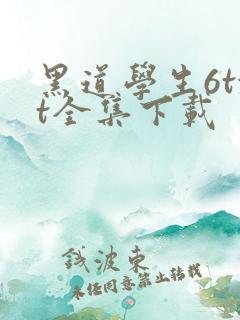 黑道學生6tx
t全集下載
錢波東
未經同意禁止轉載